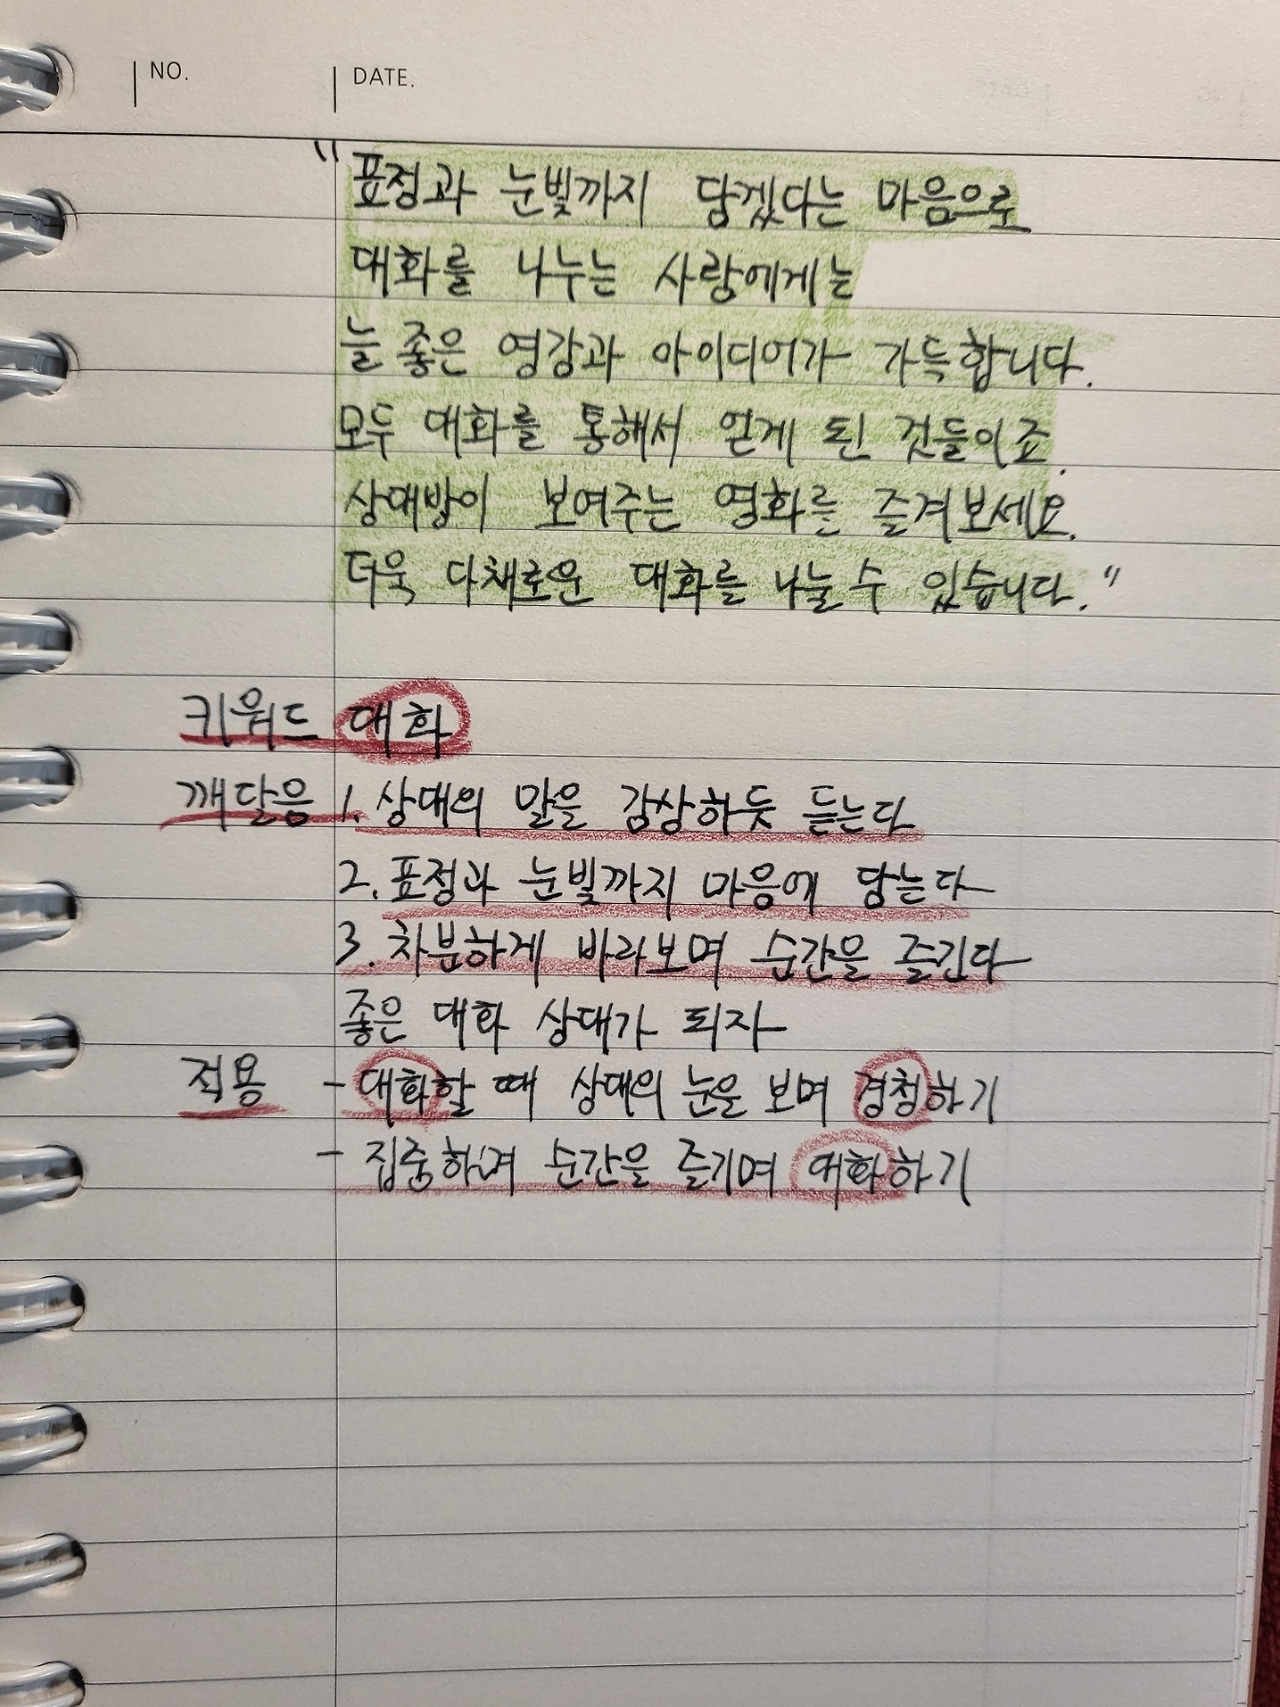 NO. DATE.
"표정과 눈빛까지 담겠다는 마음으로
대화를 나누는 사람에게는
늘 좋은 영감과 아이디어가 가득합니다.
모두 대화를 통해서 얻게 된 것들이죠.
상대방이 보여주는 영화를 즐겨보세요.
더욱 다채로운 대화를 나눌 수 있습니다."
키워드 대화
깨달음 1. 상대의 말을 감상하듯 듣는다
2. 표정과 눈빛까지 마음에 담는다
3. 차분하게 바라보며 순간을 즐긴다
좋은 대화 상대가 되자
적용 - 대화할 때 상대의 눈을 보며 경청하기
- 집중하며 순간을 즐기며 대화하기